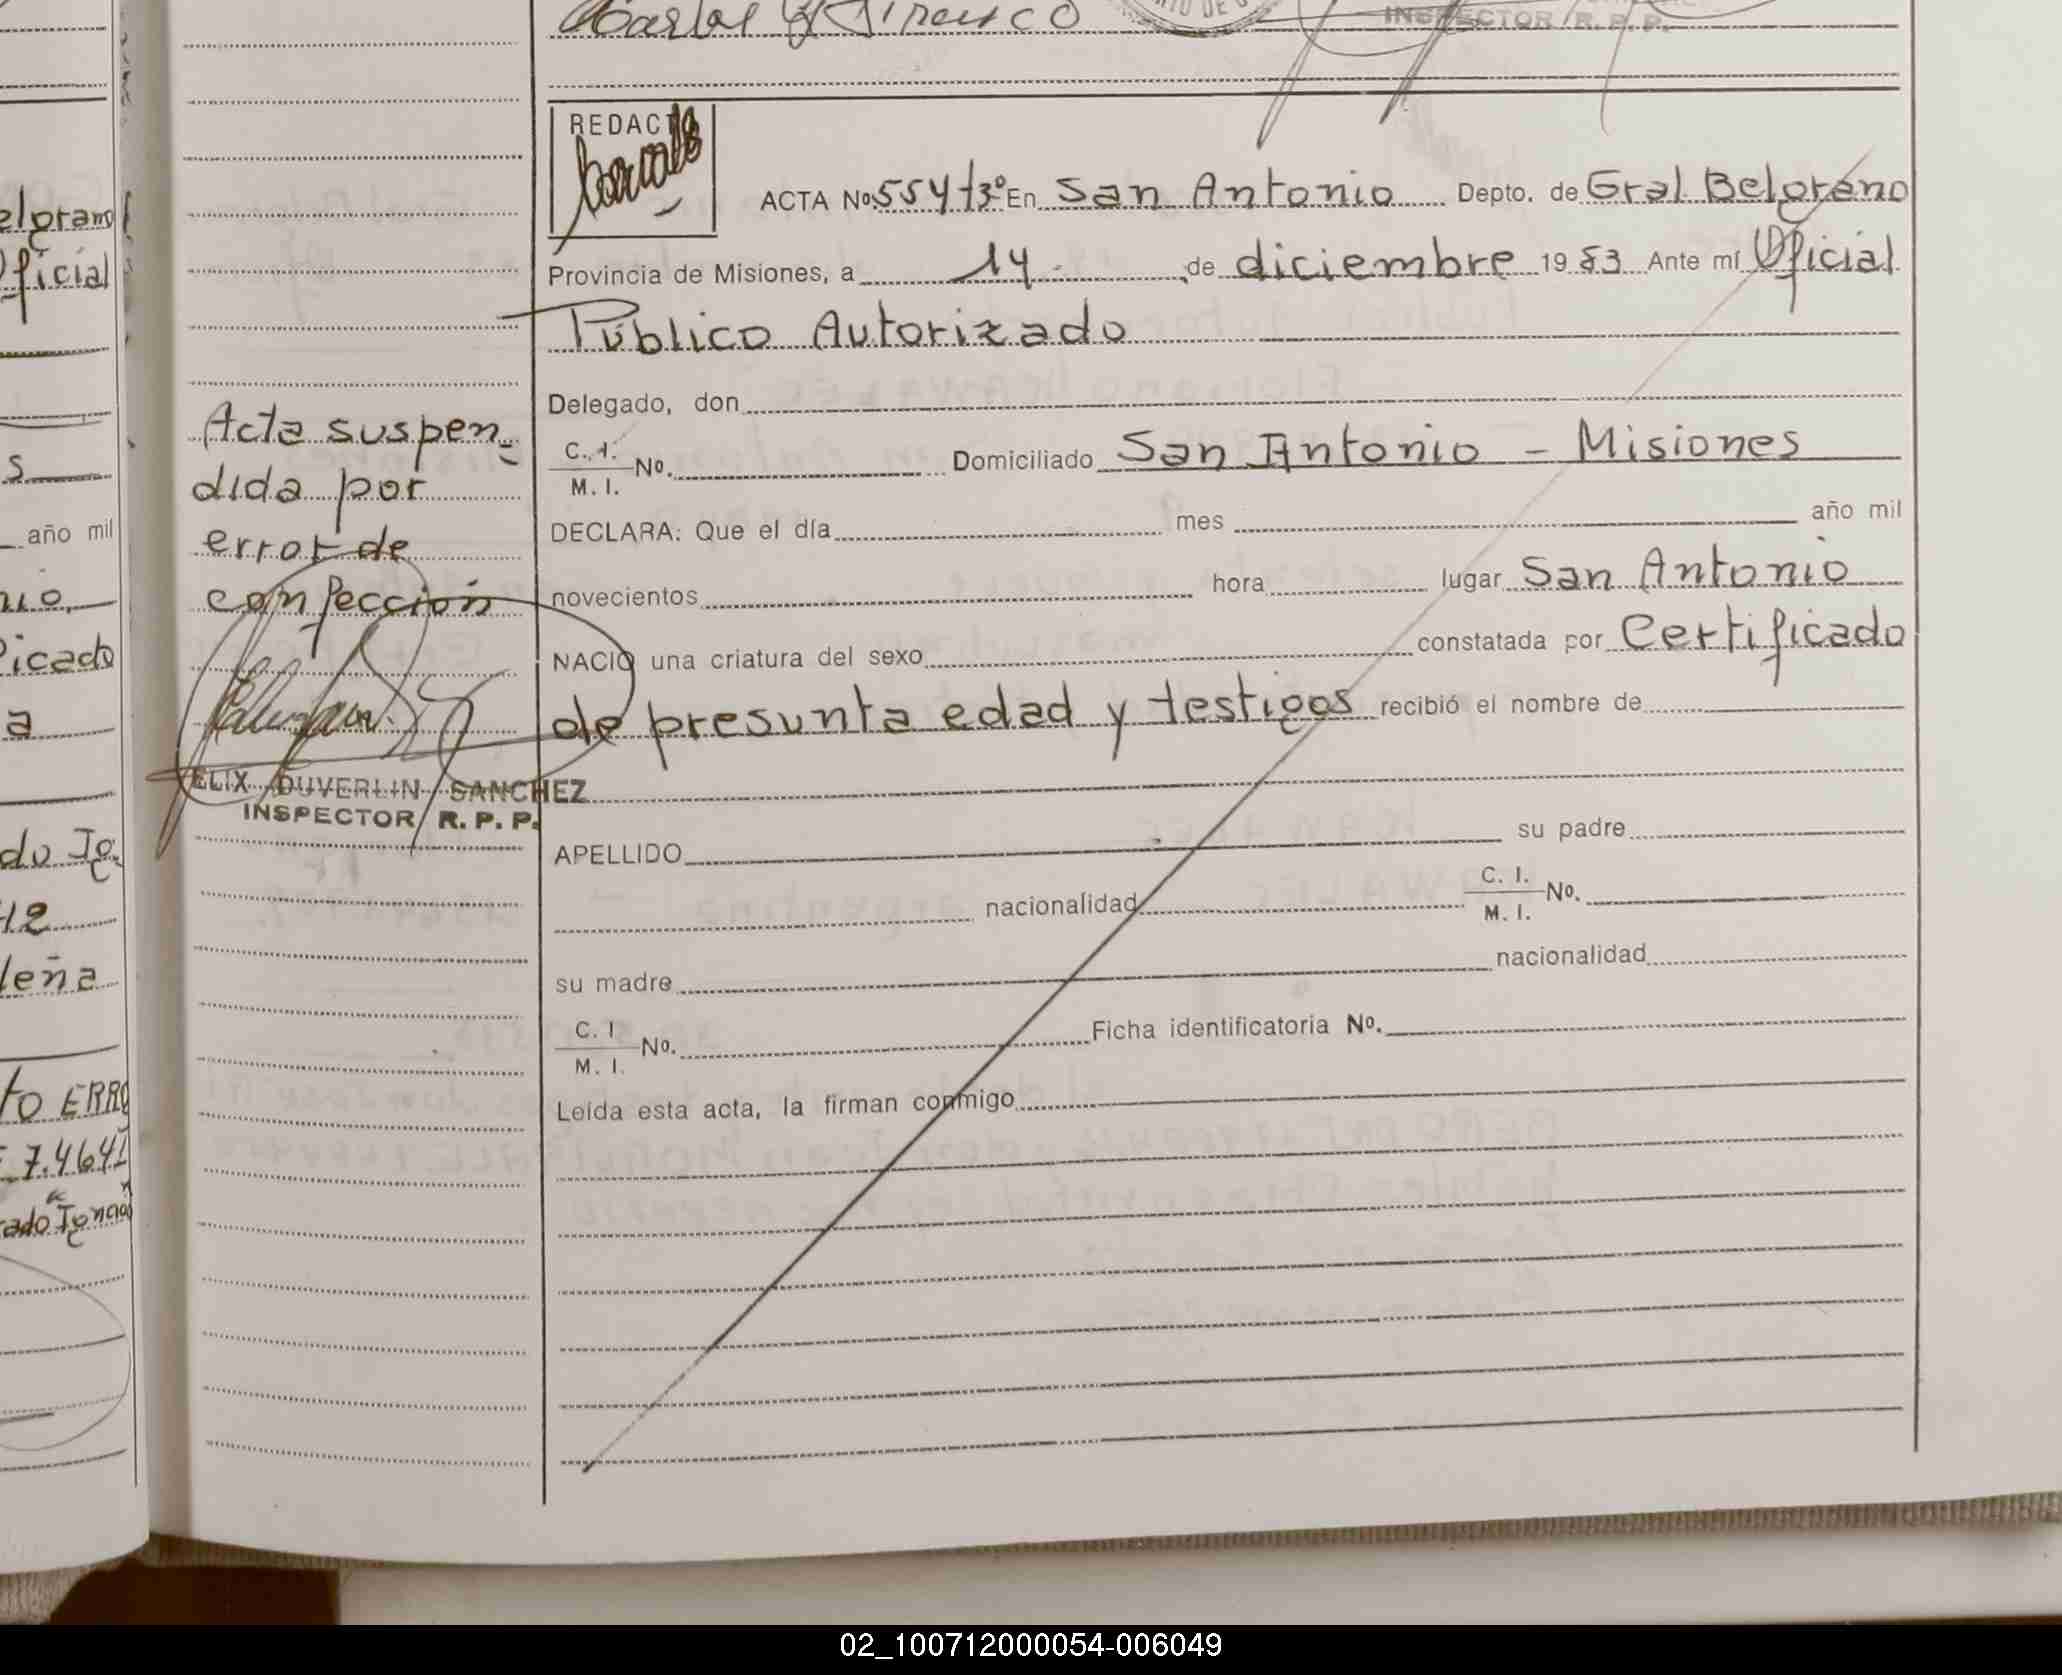 Carlos
INSPECTOR R. P. P.
REDACT
ACTA Nº 554 t3º En San Antonio Depto. de Gral Belgrano
Provincia de Misiones, a 14 de diciembre 1983 Ante mí Oficial
Público Autorizado
Delegado, don
C. I. M. I. Nº. Domiciliado San Antonio - Misiones
DECLARA: Que el día mes año mil
novecientos hora lugar San Antonio
NACIO una criatura del sexo constatada por Certificado
de presunta edad y testigos recibió el nombre de
APELLIDO su padre
nacionalidad C. I. M. I. Nº.
su madre nacionalidad
C. I M. I. Nº. Ficha identificatoria Nº.
Leída esta acta, la firman conmigo
Acta suspen-
dida por
error de
confección
ELIX DUVERLIN SANCHEZ
INSPECTOR R. P. P.
elgrano
Oficial
s
año mil
nio,
ficado
a
do Ig
42
leña
to ERRO
7.4641
02_100712000054-006049